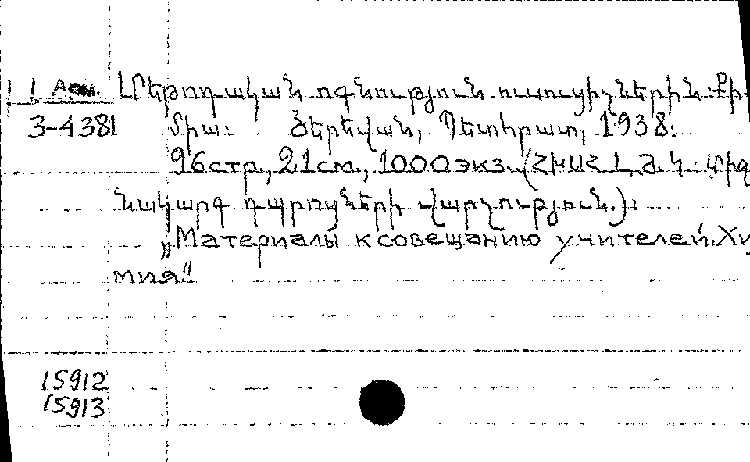 Մեթոդական ոգնություն ուսուցիչներին: Քի-
3-4381 միա: Յերեվան, Պետհրատ, 1938:
96стр., 21см., 1000экз. (ՀԽՍՀ Լ.Ժ.Կ. միջ
նակարգ դպրոցների վարչություն.):
„Материалы к совещанию учителей. Хи
мия"
15912
15913